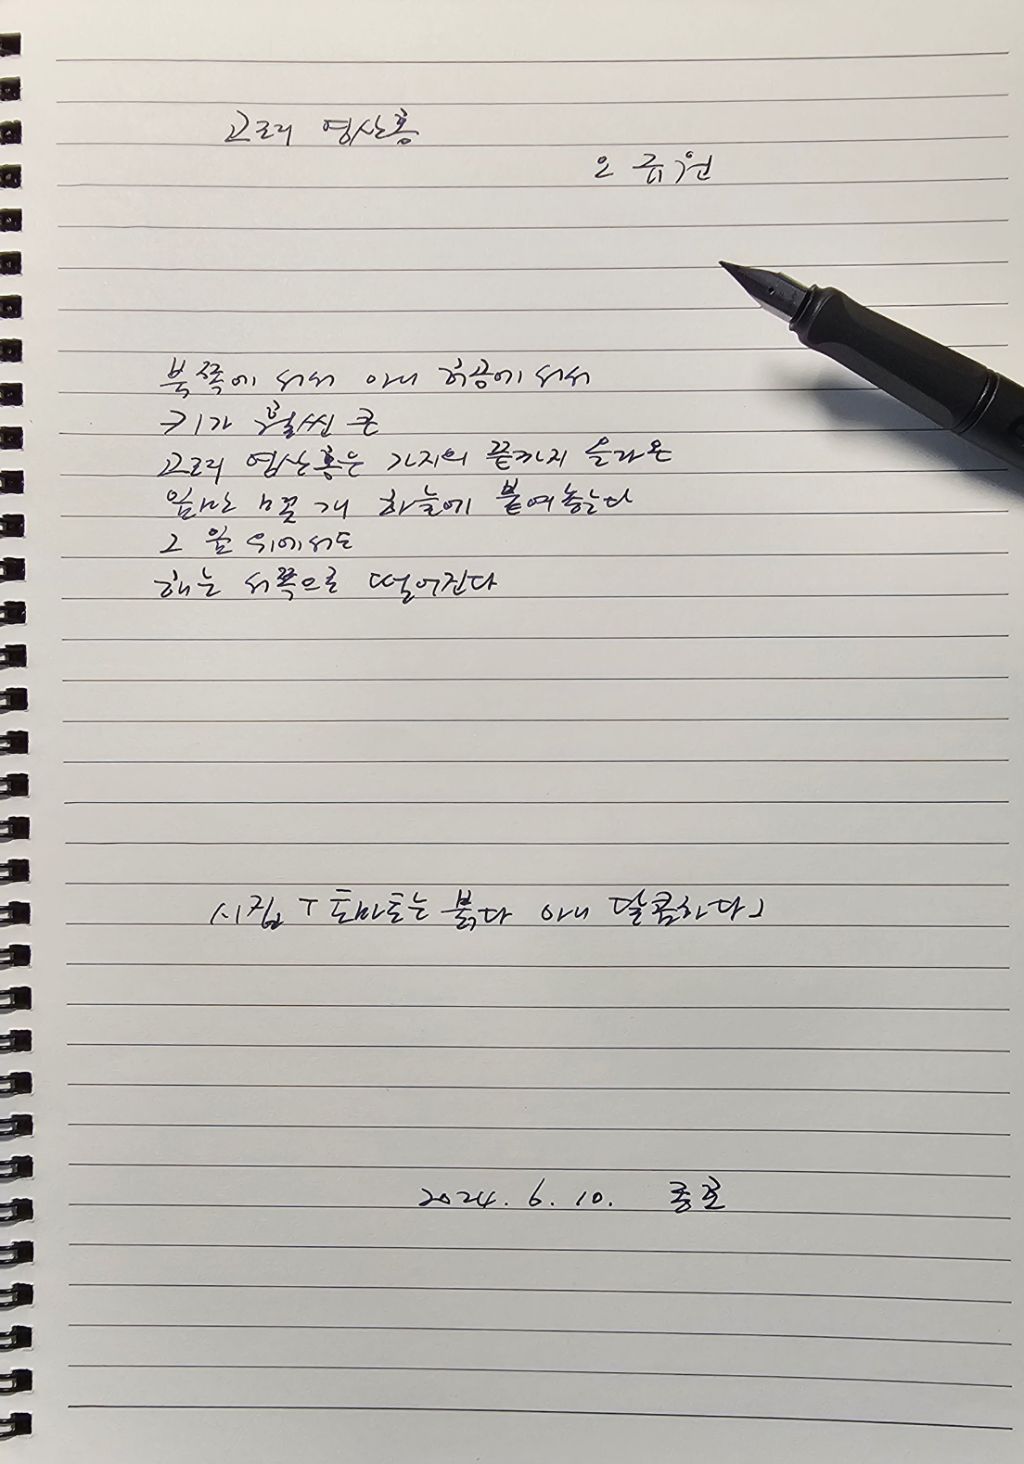 고려 영산홍
오 규원
북쪽에 서서 아니 허공에 서서
키가 훨씬 큰
고려 영산홍은 가지의 끝까지 올라온
잎만 몇 개 하늘에 붙여놓는다
그 잎 위에서도
해는 서쪽으로 떨어진다
시집 「토마토는 붉다 아니 달콤하다」
2024. 6. 10. 종호